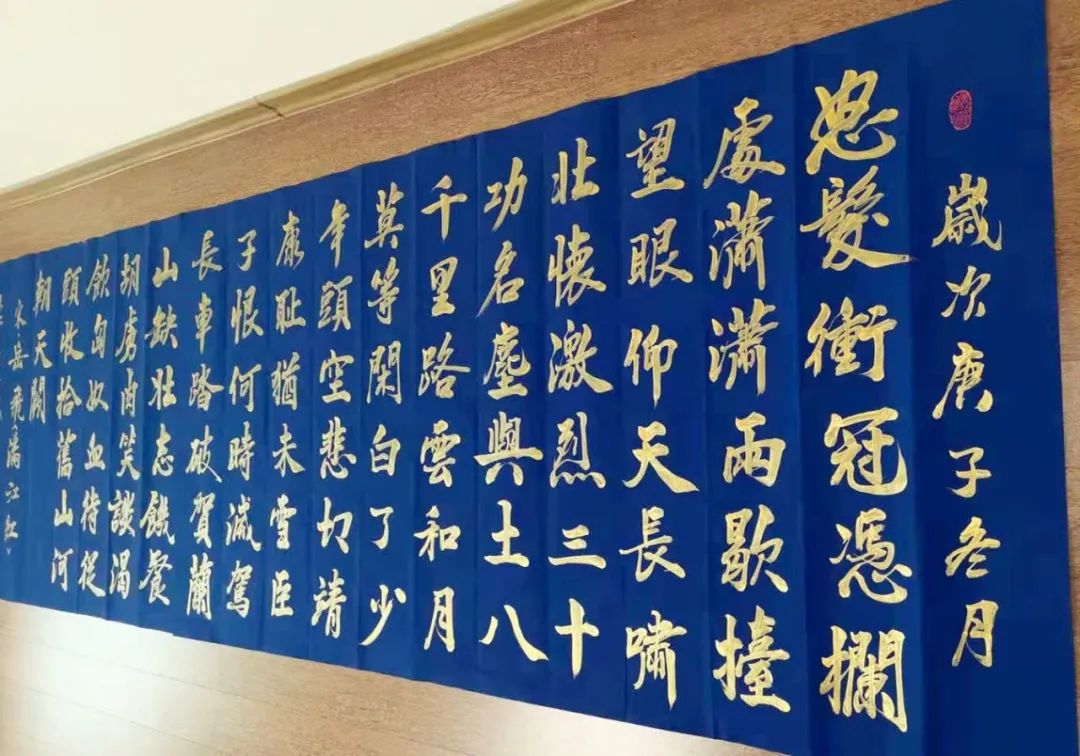 歲次庚子冬月
怒髮衝冠憑欄
處瀟瀟雨歇擡
望眼仰天長嘯
壯懷激烈三十
功名塵與土八
千里路雲和月
莫等閑白了少
年頭空悲切靖
康耻猶未雪臣
子恨何時滅駕
長車踏破賀蘭
山缺壯志饑餐
胡虜肉笑談渴
飲匈奴血待從
頭收拾舊山河
朝天闕
宋岳飛《滿江紅》